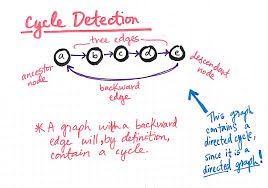 Cycle Detection
tree edges
a b c d e
ancestor
node
descendant
node
backward
edge
* A graph with a backward
edge will, by definition,
contain a cycle.
This graph
contains a
directed cycle,
since it is a
directed graph!